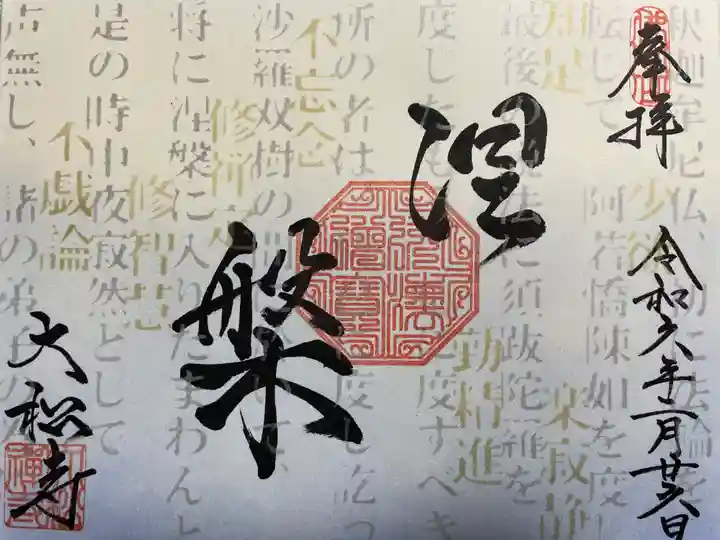 奉拝
令和六年二月廿六日
涅
槃
大松寺
釈迦牟尼仏、初に法輪を
転じて、阿若憍陳如を度し
最後の説法に須跋陀羅を
度したもう
度すべき
所の者は
度し訖っ
沙羅双樹の間に
いて、
将に涅槃に入りたまわんと
是の時中夜寂然として
声無し、諸の弟子の
少欲
知足
楽寂静
勤精進
不忘念
修禅定
修智慧
不戯論